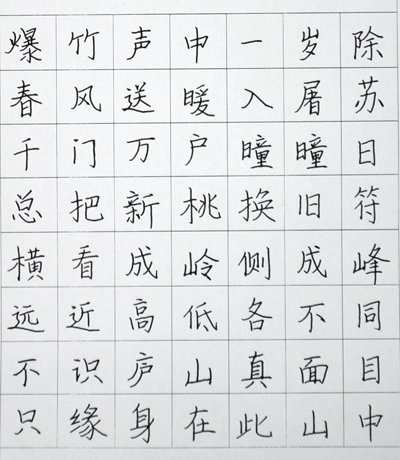 爆竹声中一岁除
春风送暖入屠苏
千门万户瞳瞳日
总把新桃换旧符
横看成岭侧成峰
远近高低各不同
不识庐山真面目
只缘身在此山中